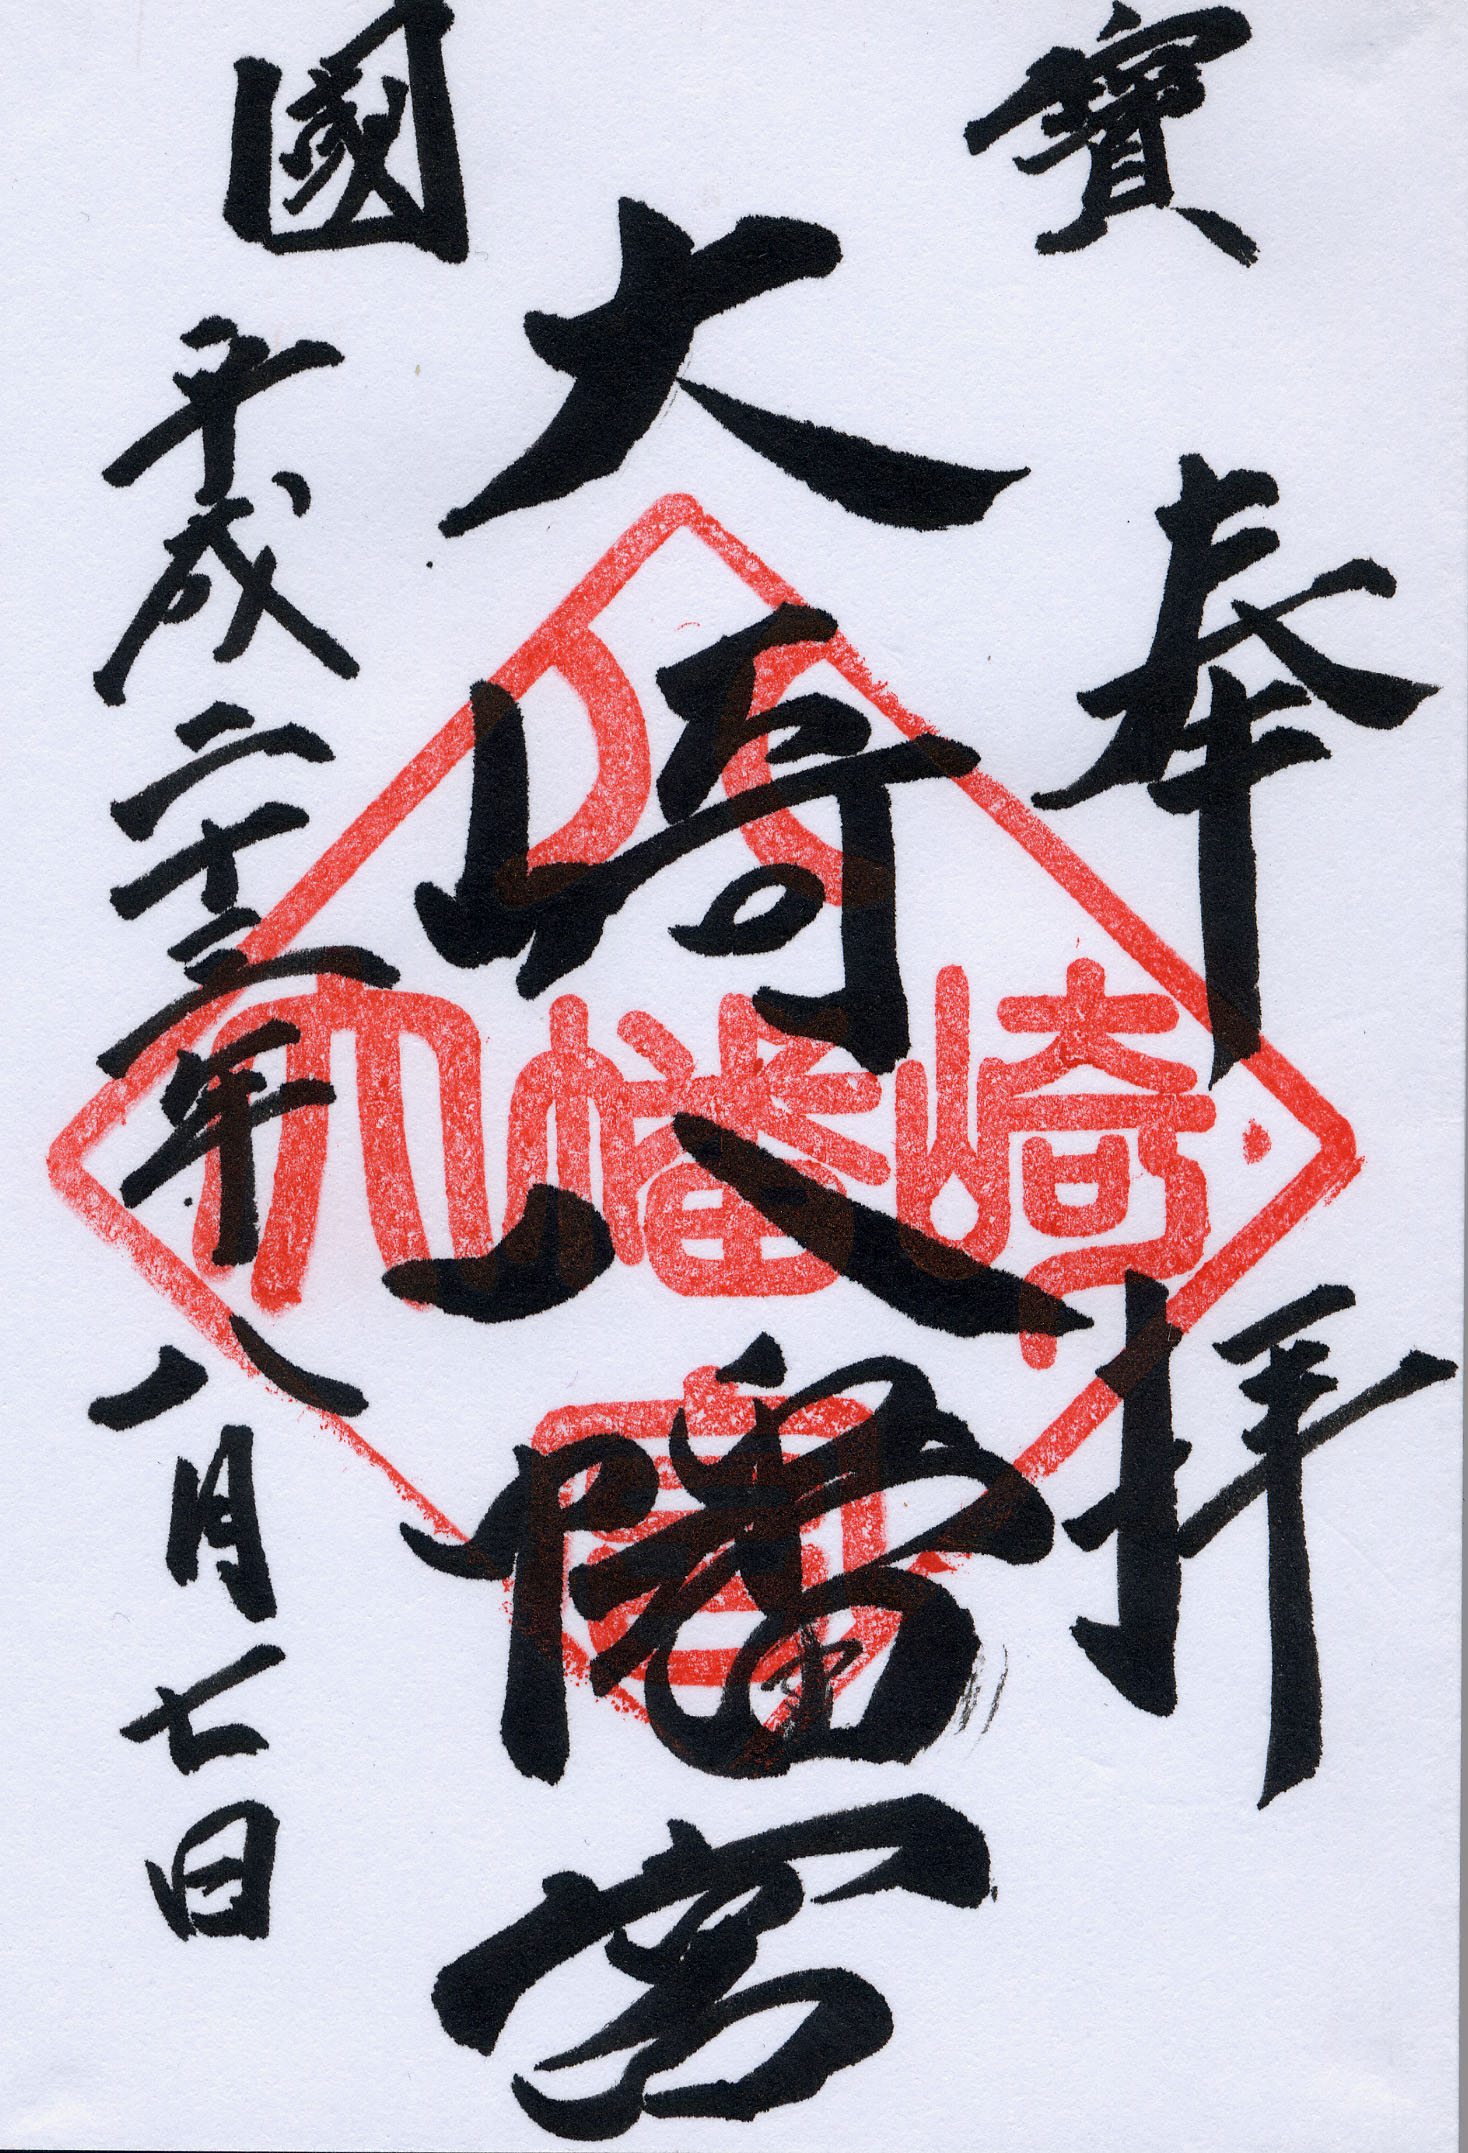 寶國
奉拝
大崎八幡宮
平成二十三年八月七日
大崎八幡宮